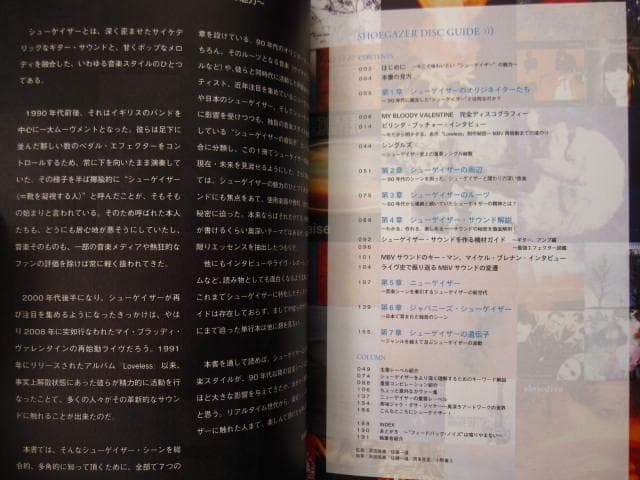 シューゲイザーとは、深く歪ませたサイケデ
リックなギター・サウンドと、甘くポップなメロ
ディを融合した、いわゆる音楽スタイルのひとつ
である。
1990年代前後、それはイギリスのバンドを
中心に一大ムーヴメントとなった。彼らは足下に
並んだ夥しい数のペダル・エフェクターをコン
トロールするため、常に下を向いたまま演奏して
いた。その様子を半ば揶揄的に“シューゲイザー
(=靴を凝視する人)”と呼んだことが、そもそも
の始まりと言われている。そのため呼ばれた本人
たちも、どうにも居心地が悪そうにしていたし、
音楽そのものも、一部の音楽メディアや熱狂的な
ファンの評価を除けば常に軽く扱われてきた。
2000年代後半になり、シューゲイザーが再
び注目を集めるようになったきっかけは、やはり
2008年に突如行なわれたマイ・ブラッディ・
ヴァレンタインの再始動ライヴだろう。1991
年にリリースされたアルバム『Loveless』以来、
事実上解散状態にあった彼らが精力的に活動を行
なったことで、多くの人々がその革新的なサウン
ドに触れることが出来たのだ。
本書では、そんなシューゲイザー・シーンを総
合的、多角的に知って頂くために、全部で7つの
章を設けている。90年代のオリジネイ
ちろん、そのルーツとなる音楽
など)や、彼らと同時代に活躍した
ティスト、近年注目を集めている
や日本のシューゲイザー、そしてシュー
に影響を受けつつも、独自の音楽スタイル
している“シューゲイザーの遺伝子”
に分類し、この1冊でシューゲイザー
現在・未来を見渡せるようにした。さら
ては、シューゲイザーの魅力のひとつ
ンドにも焦点をあて、使用楽器や機材
秘密に迫った。本来ならばそれだけで
が書けるくらい面白いテーマではあるが、
限りエッセンスを抽出したつもりだ。
他にもインタビューやライヴ・レポート、
ムなど、読み物としても面白くなるように
これまでシューゲイザーに特化したディス
イドは存在しておらず、ましてや
にまで迫った単行本は他に類を見ない
本書を通して読めば、シューゲイザー
楽スタイルが、90年代以降の音楽シーン
ほど大きな影響を与えてきたか、
と思う。リアルタイム世代から、
ザーに触れた人まで、楽しんで頂
SHOEGAZER DISC GUIDE )))
CONTENTS
003 はじめに ～今こそ味わいたい“シューゲイザー”の魅力～
004 本書の見方
005 第1章 シューゲイザーのオリジネイターたち
～90年代に誕生した“シューゲイザー”とは何なのか？
006 MY BLOODY VALENTINE 完全ディスコグラフィー
014 ビリンダ・ブッチャー・インタビュー
044 シングルズ
～シューゲイザー史上の重要シングル総覧
051 第2章 シューゲイザーの周辺
075 第3章 シューゲイザーのルーツ
089 第4章 シューゲイザー・サウンド解説
092 シューゲイザー・サウンドを作る機材ガイド ～ギター、アンプ編
096 ～最強エフェクター図鑑
101 MBVサウンドのキー・マン、マイケル・ブレナン・インタビュー
104 ライヴ史で振り返るMBVサウンドの変遷
107 第5章 ニューゲイザー
～音楽シーンを牽引するシューゲイザーの新世代
129 第6章 ジャパニーズ・シューゲイザー
～日本で育まれた独自のシーン
155 第7章 シューゲイザーの遺伝子
～ジャンルを越えて及ぶシューゲイザーの波動
COLUMN
049 主要レーベル紹介
074 シューゲイザーをより深く理解するためのキーワード解説
088 重要コンピレーション紹介
106 ちょっと意外なカヴァー集
127 ニューゲイザーの重要レーベル
186 こんなところにシューゲイザー！
188 INDEX
190 あとがき ～“フィードバック・ノイズ”は鳴りやまない～
191 執筆者紹介